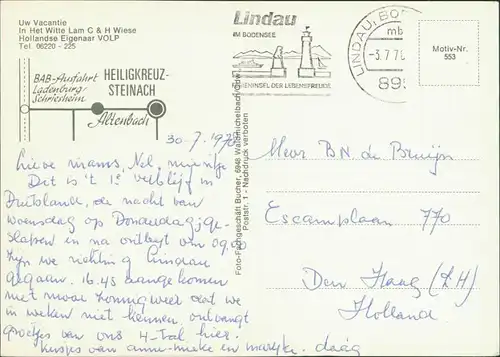 Uw Vacantie
In Het Witte Lam C & H Wiese
Hollandse Eigenaar VOLP
Tel. 06220 - 225
BAB-Ausfahrt
Ladenburg-
Schriesheim
HEILIGKREUZ-
STEINACH
Altenbach
Lindau
IM BODENSEE
LINDAU, BO
mb
-3.7.7
899
Motiv-Nr.
553
Foto-Fachgeschäft Bucher, 6948 Waldmichelbach/Odw.
Poststr. 1 - Nachdruck verboten
30.7.197
Lieve mams, Nel, mijntje
Dit is 't 1e verblijf in
Duitsland, de nacht van
woensdag op Donderdag, ge-
slapen en na ontbijt om 09.00
zijn we richting Lindau
gegaan. 16.45 aangekomen
met mooi zonnig weer dat we
in weken niet kennen, ontvangt
groetjes van ons 4-tal hier.
kusjes van anne-mieke en marijke. daag
Mevr B.N. de Bruijn
Escamplaan 770
Den Haag (Z.H)
Holland